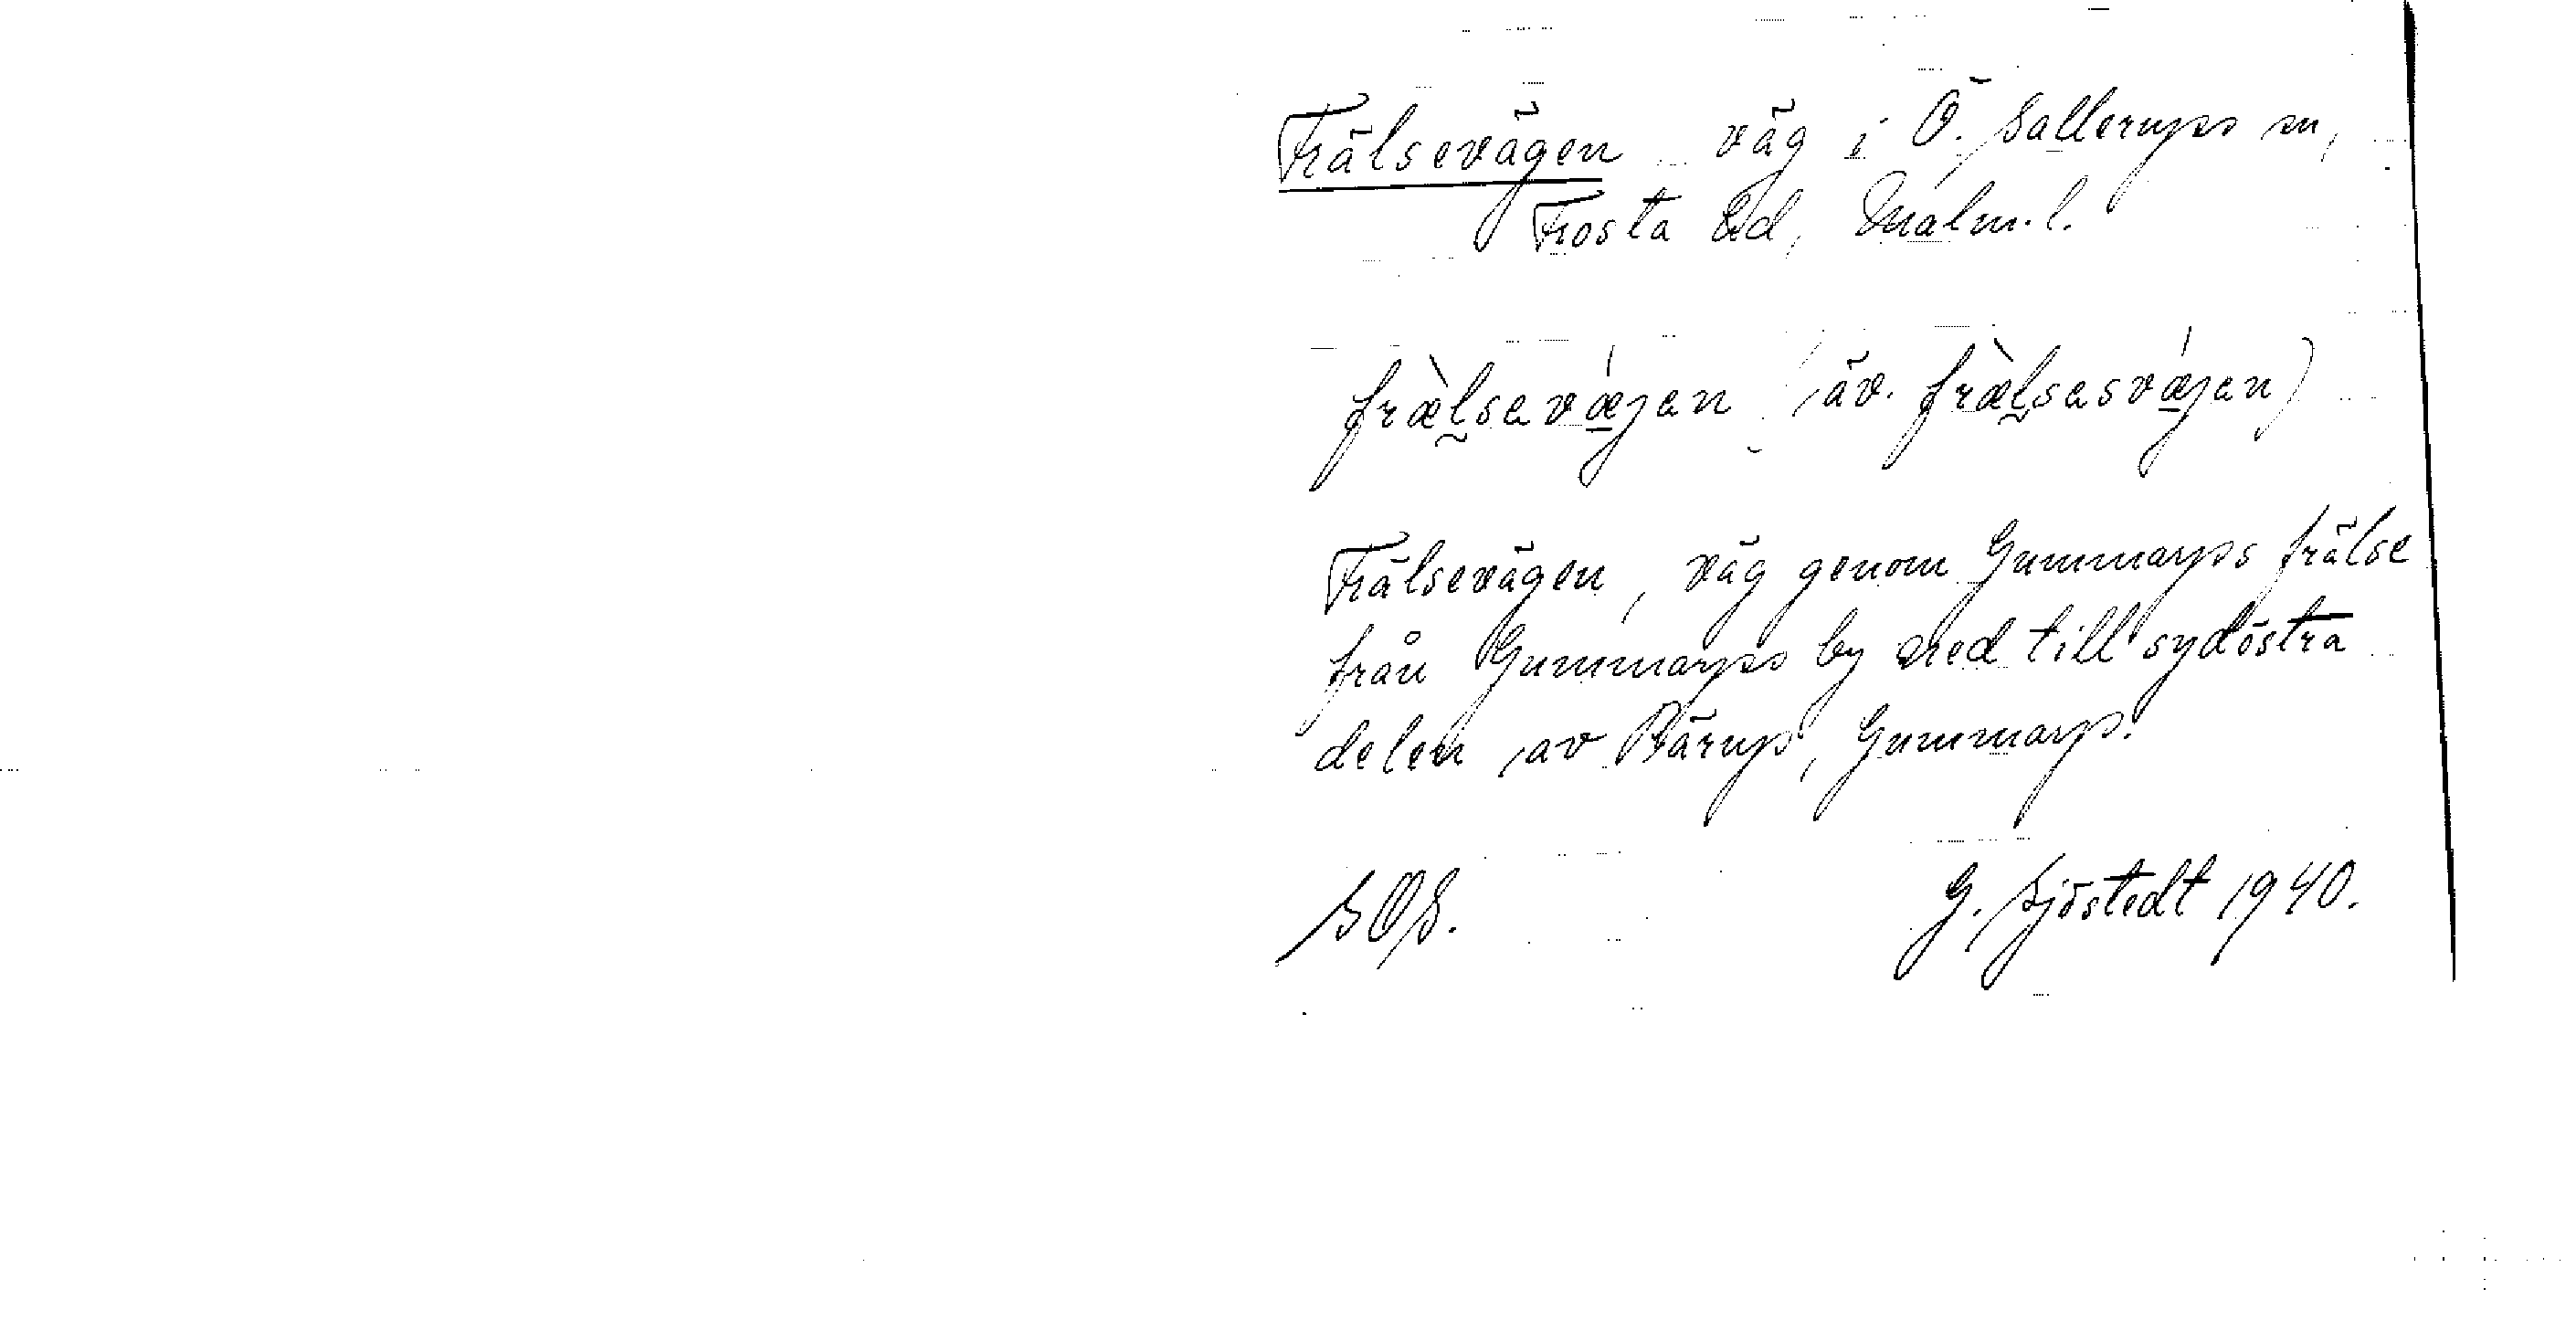 Frälsevägen väg i Ö. Sallerups sn,
Frosta hd, Malm. l.
fræ̀lsevǽjen (äv. fræ̀lsesvǽjen)
Frälsevägen, väg genom Gummarps frälse
från Gummarps by ned till sydöstra
delen av Bärup, Gummarp.
SOS.
G. Sjöstedt 1940.